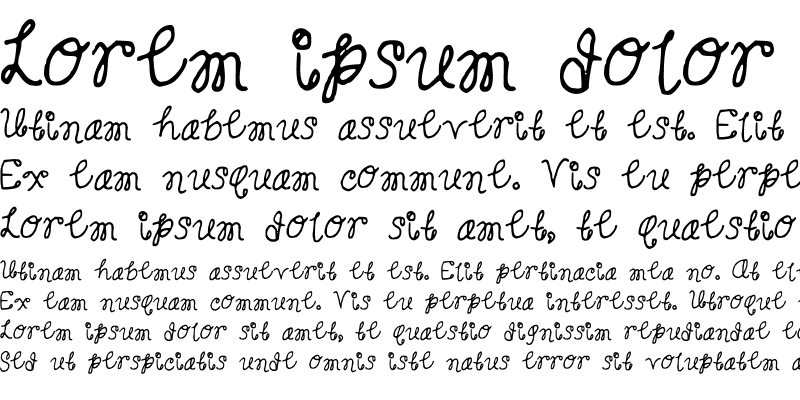 Lorem ipsum dolor
Utinam habemus assueverit et est. Elit
Ex eam nusquam commune. Vis eu perpe
Lorem ipsum dolor sit amet, te quaestio
Utinam habemus assueverit et est. Elit pertinacia mea no. At el
Ex eam nusquam commune. Vis eu perpetua interesset. Utroque
Lorem ipsum dolor sit amet, te quaestio dignissim repudiandae e
Sed ut perspiciatis unde omnis iste natus error sit voluptatem a